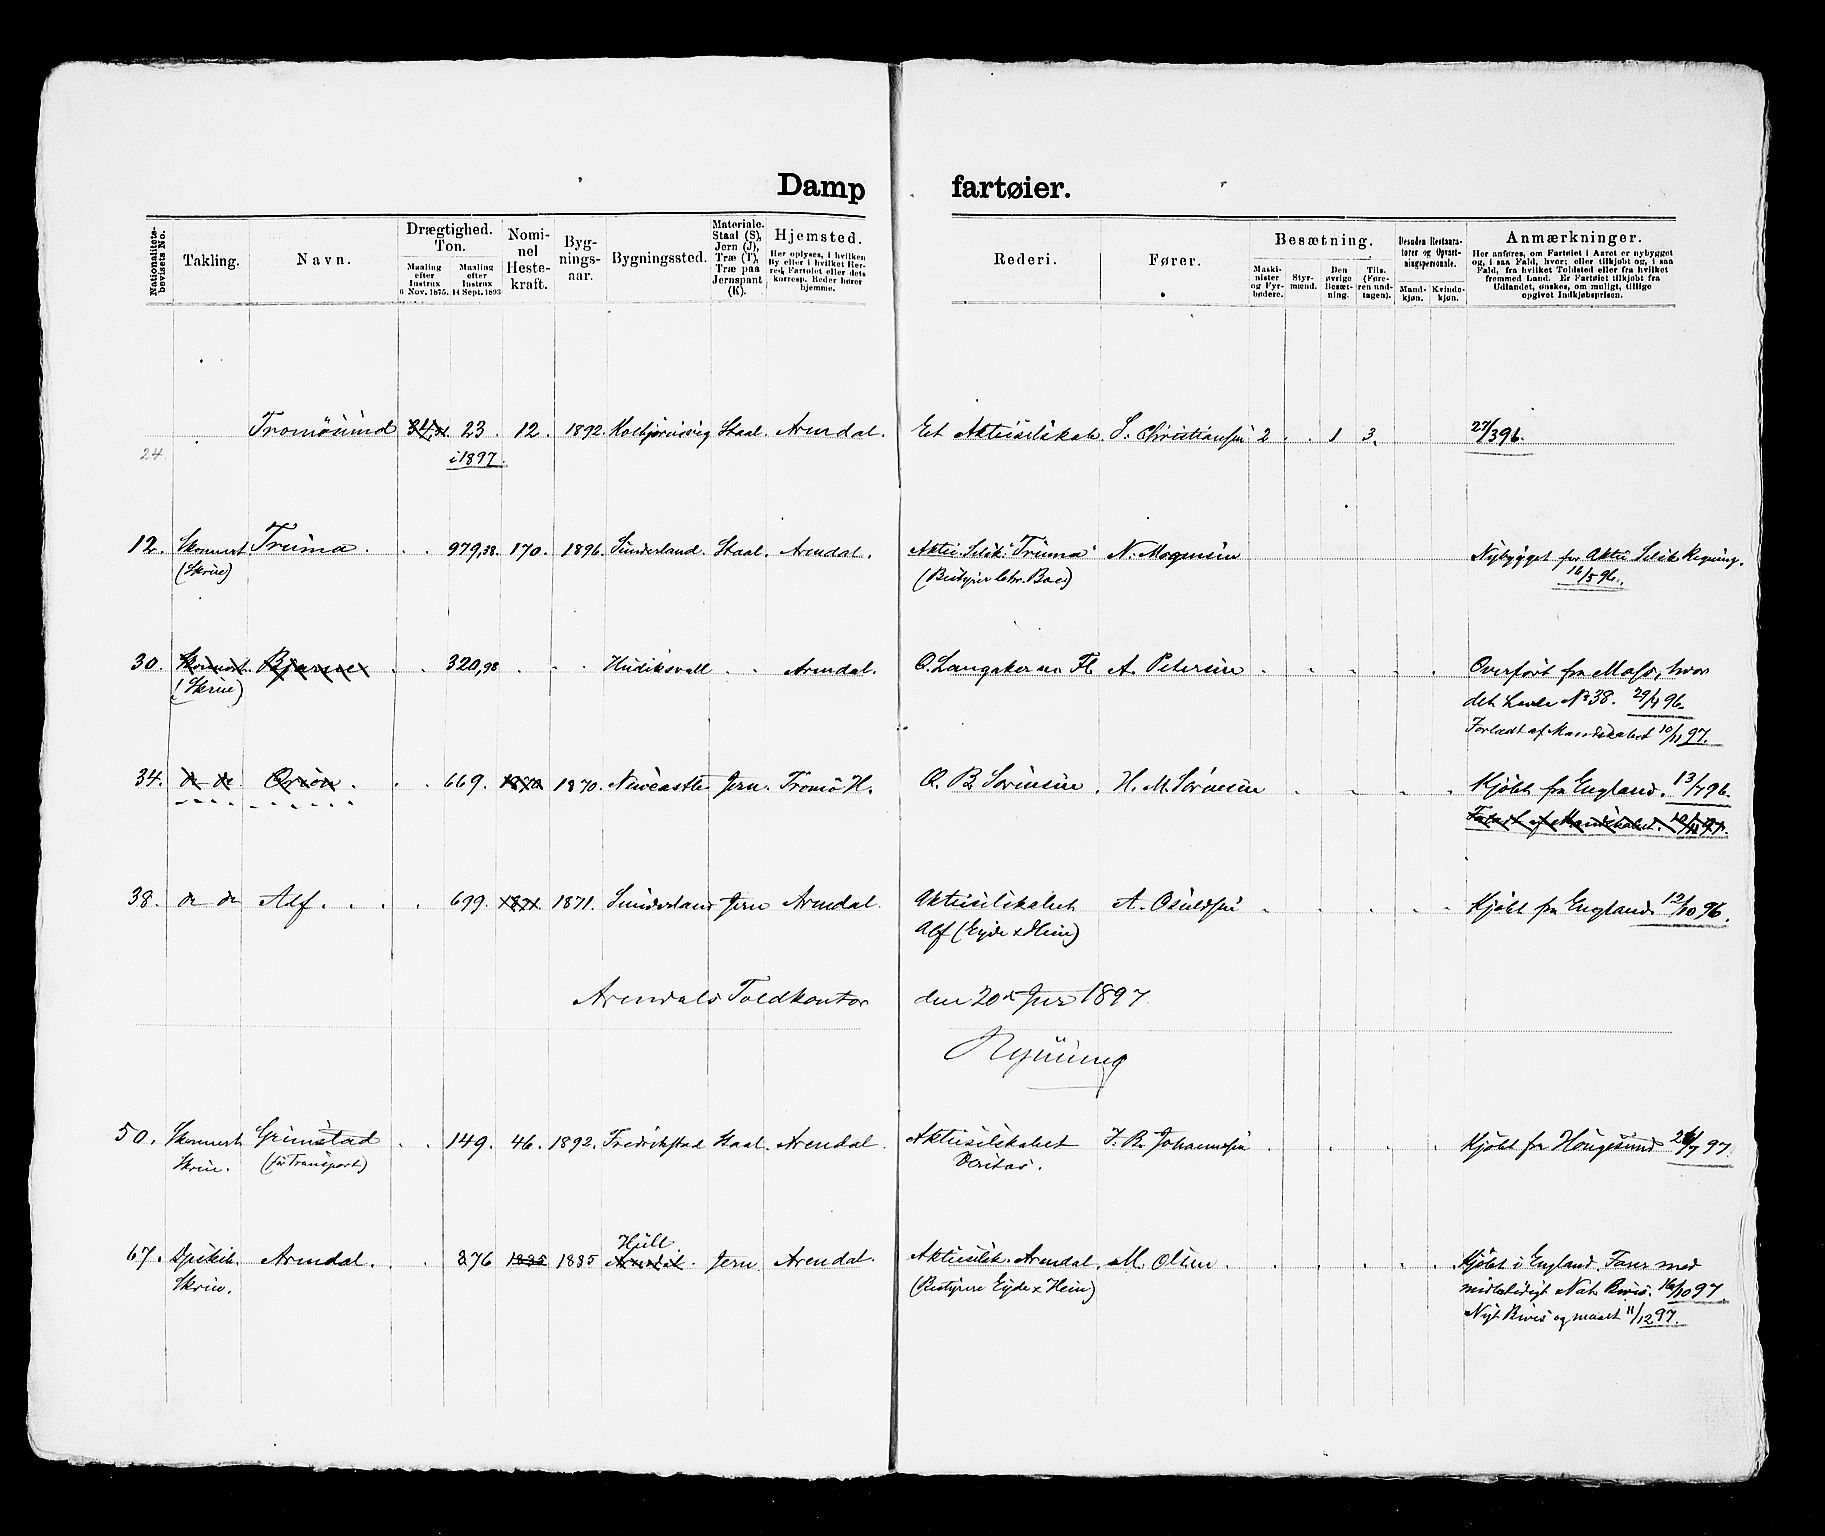 Damp fartøier.
Nationalitets-bevisets No. Takling. Navn. Drægtighed. Ton. Maaling efter Instrux 6 Nov. 1875. Maaling efter Instrux 14 Sept. 1893 Nominel Hestekraft. Bygningsaar. Bygningssted. Materiale. Staal (S), Jern (J), Træ (T), Træ paa Jernspant (K). Hjemsted. Her oplyses, i hvilken By eller i hvilket Herred, Fartøiet eller dets korresp. Reder hører hjemme. Rederi. Fører. Besætning. Maskinister og Fyrbødere. Styrmænd. Den øvrige Besætning. Tils. (Føreren undtagen). Desuden Restauratører og Opvartningspersonale. Mandkjøn. Kvindekjøn. Anmærkninger. Her anføres, om Fartøiet i Aaret er nybygget og, i saa Fald, hvor; eller tilkjøbt og, i saa Fald, fra hvilket Toldsted eller fra hvilket fremmed Land. Er Fartøiet tilkjøbt fra Udlandet, ønskes, om muligt, tillige opgivet Indkjøbsprisen.
Tromøsund 23 12. 1892. Kolbjørnsvig Staal. Arendal. Et Aktieselskab S. Christiansen 2 . . 1 3. 27/3 96.
24. i 1897
12. Skonnert Truma . . . 979,38. 170. 1896. Sunderland. Staal. Arendal. Aktie Selsk. "Truma" N. Mogensen Nybygget for Aktie Selsk Regning.
(Skrue) (Bestyrer Chr. Boe) 16/5 96.
30. Skonnert Bjarne . . 320,98 . . . Hudiksvall . . Arendal. O. Langaker m. Fl A. Petersen . . . . . Overført fra Moss, hvor
(Skrue) det havde No 38. 29/4 96.
Forladt af Mandskabet 10/11 97.
34. do do Orion . . . 669. 1870 1870. Newcastle Jern. Tromø H. O. B. Sørensen . H. M. Sørensen . . . . Kjøbt fra England. 13/7 96.
Forladt af Mandskabet. 10/11 97.
38. do do Alf . . . . 699. 1871 1871. Sunderland Jern Arendal. Aktieselskabet A. Osuldsen . . . . . Kjøbt fra England 12/10 96.
Alf (Eyde & Hein)
Arendals Toldkontor den 20de Jnr 1897.
50. Skonnert Grimstad . . 149. 46. 1892. Fredrikstad Staal Arendal. Aktieselskabet J. B. Johannesen . . . . Kjøbt fra Hougesund 26/7 97.
Skrue. (før Transport) Veritas.
Hull
67. Arendal . . . 876 1885 1885 Arendal . Jern Arendal. Aktieselsk. Arendal. M. Olsen . . . . . . Kjøbt i England. Farer med
Skrue. (Bestyrere Eyde & Hein) midlertidigt Nat. Bevis. 16/10 97.
Nyt Bevis og maalt 11/12 97.